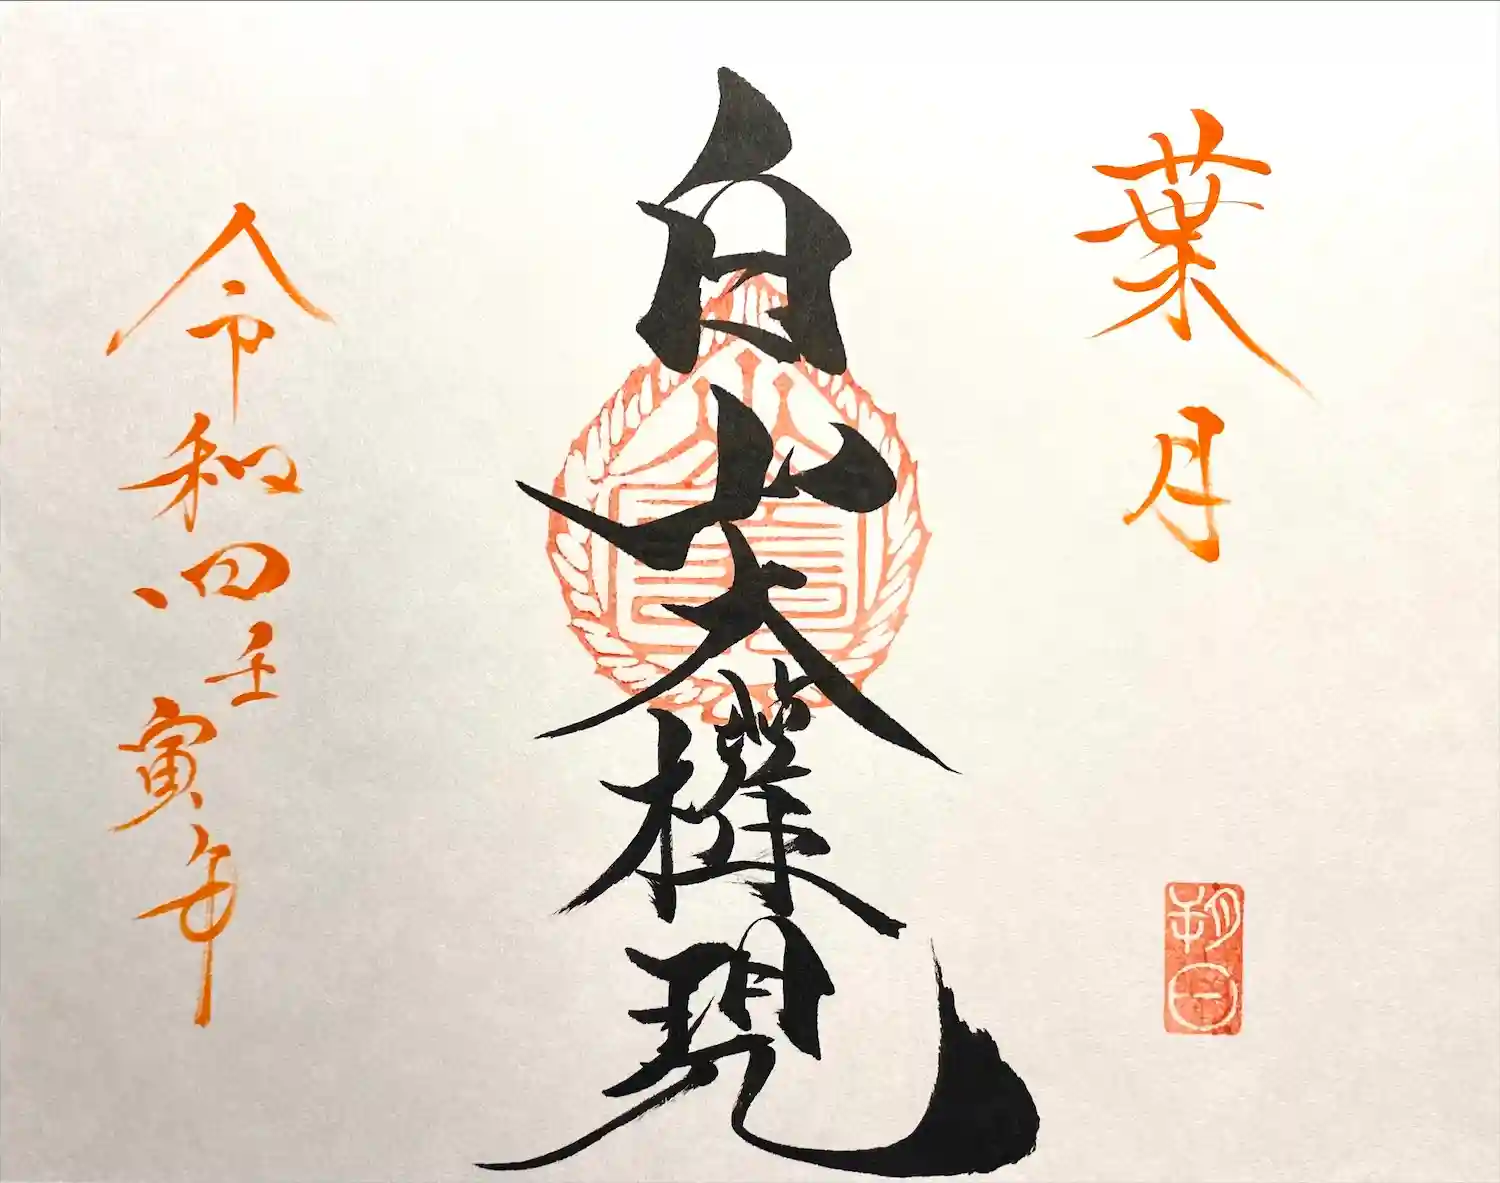 葉月
朔日
白山大権現
令和四壬寅年